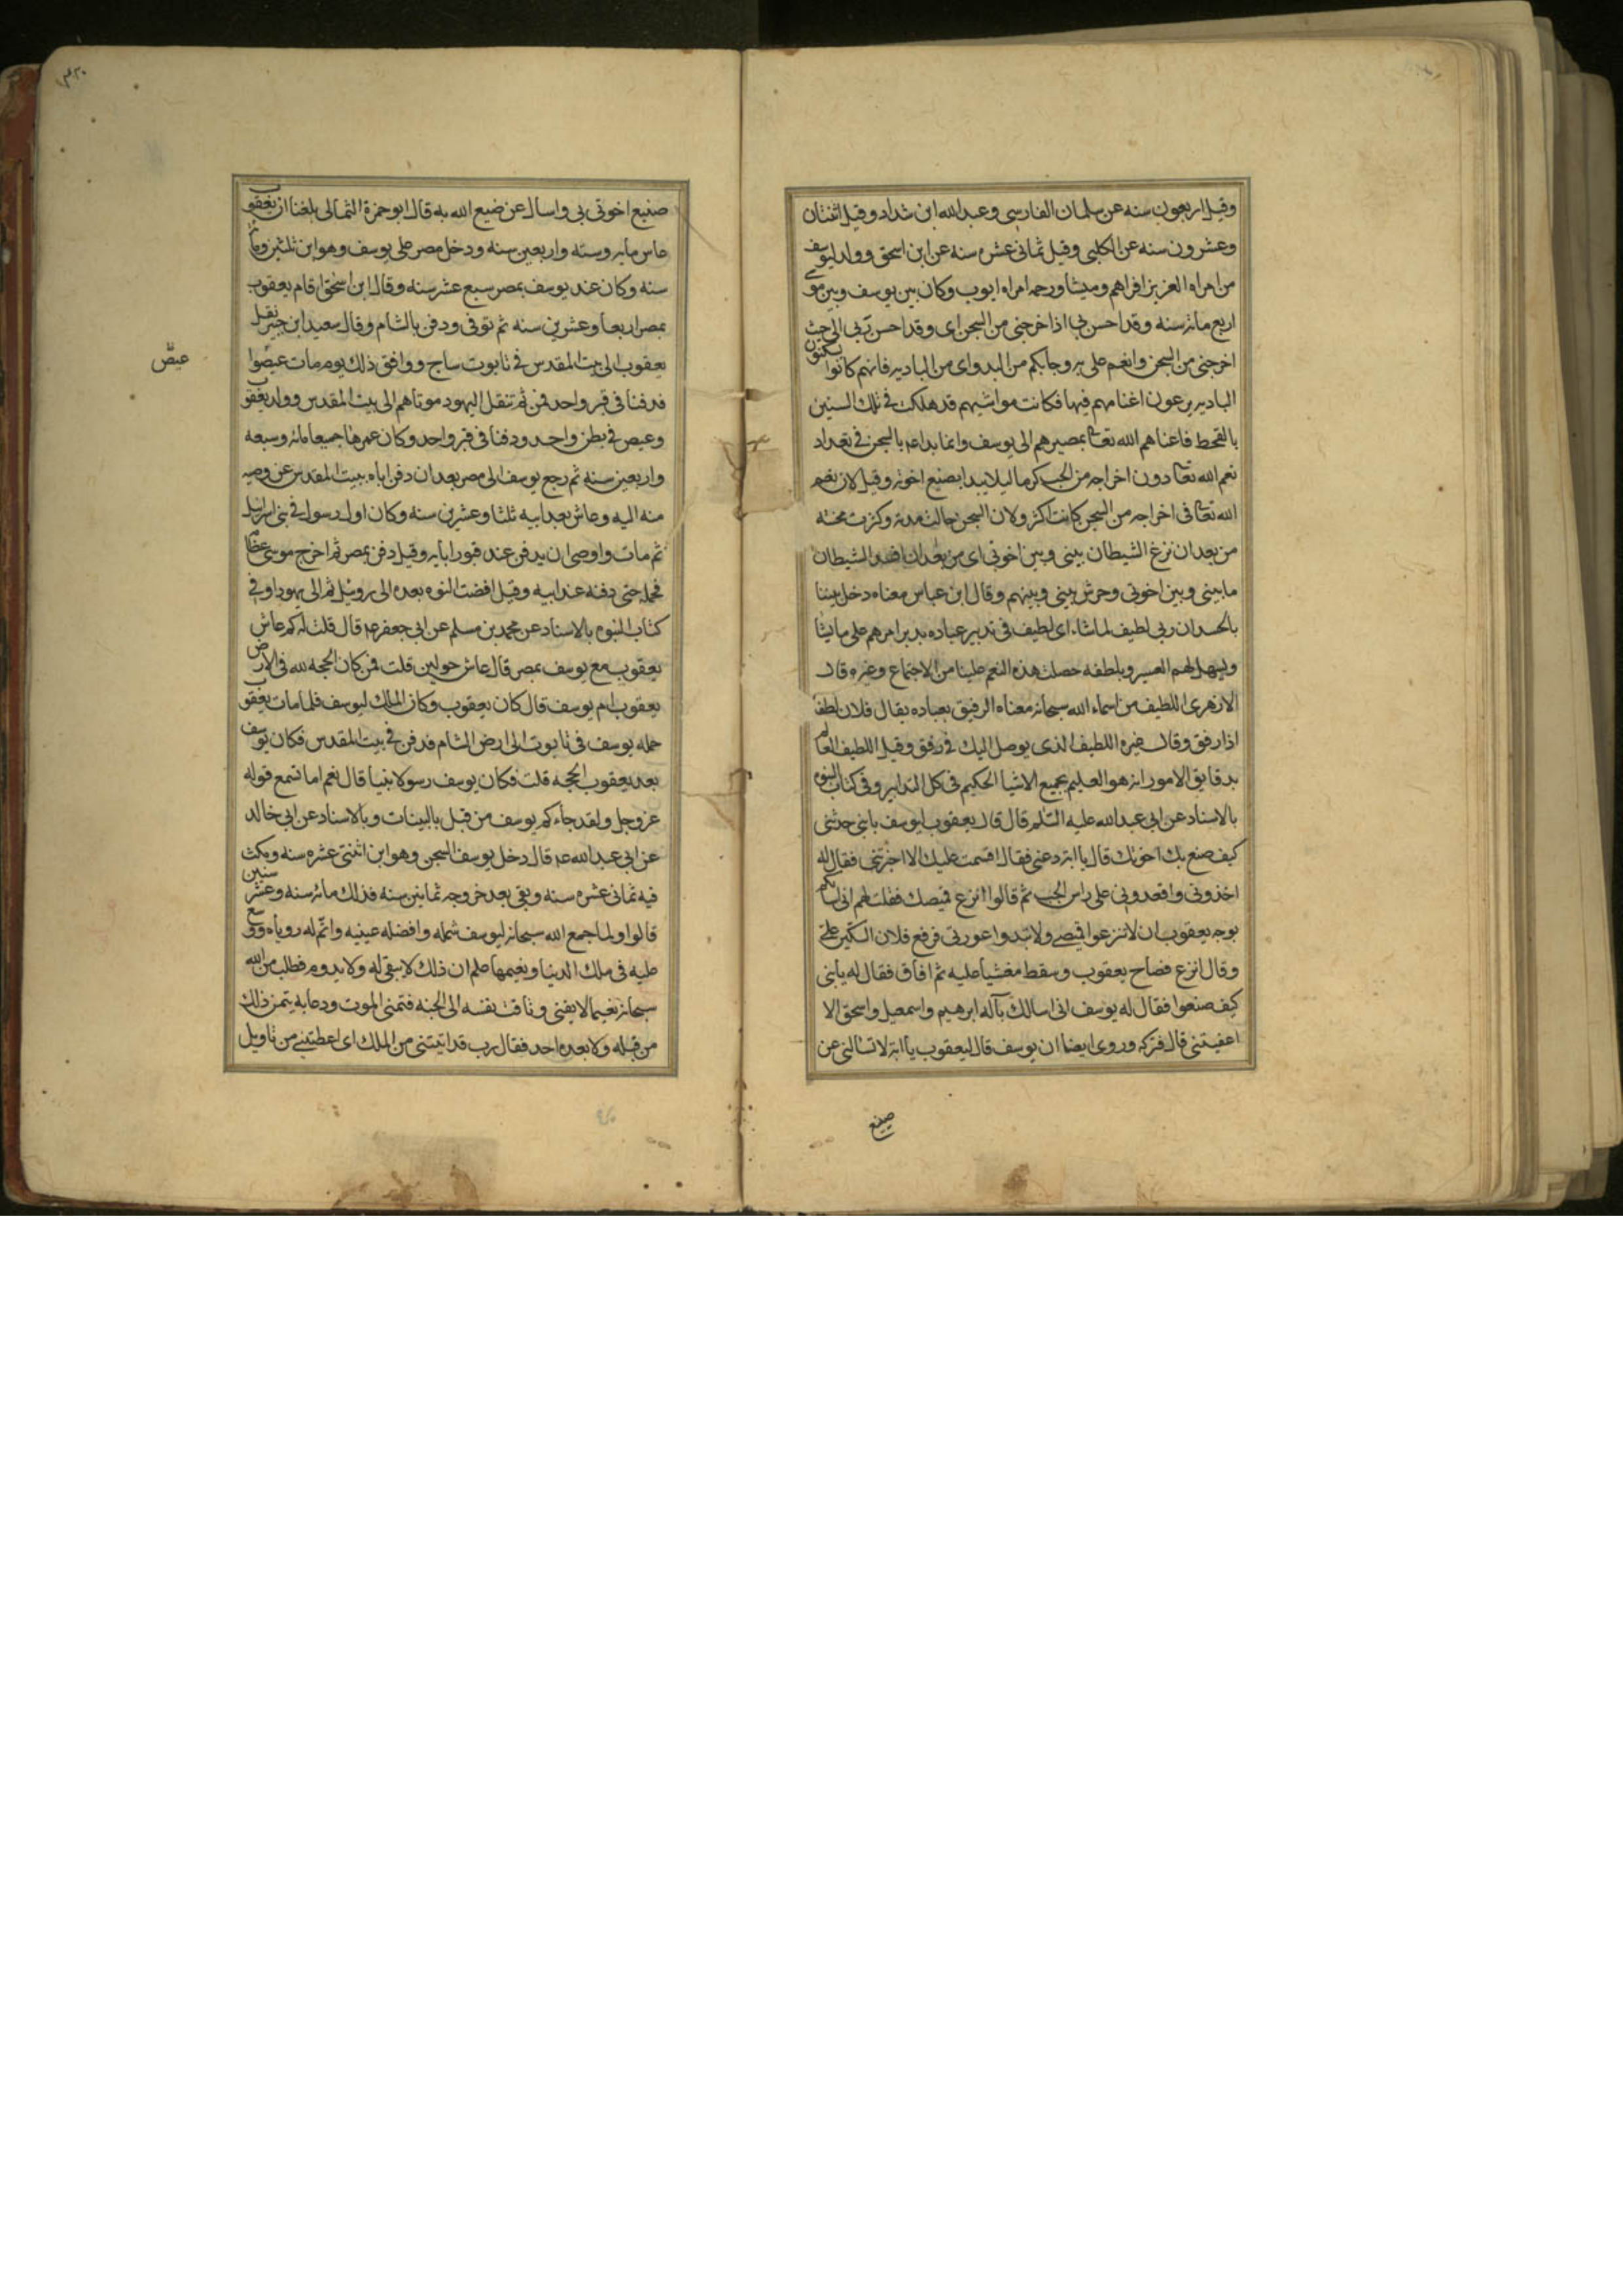 وقيل اربعون سنه عن سلمان الفارسى وعبد الله ابن شداد وقيل اثنتان
وعشرون سنه عن الكلبى وقيل ثمانى عشره سنه عن ابن اسحق وولد ليوسف
من امراه العزيز افراهم وميشا ورحمه امراه ايوب وكان بين يوسف وبين موسى
اربع مائه سنه وقد احسن بى اذ اخرجنى من السجن اى وقد احسن ربى الى حيث
اخرجنى من السجن وانعم على به وجا بكم من البدو اى من الباديه فانهم كانوا يسكنون
الباديه يرعون اغنامهم فيها فكانت مواشيهم قد هلكت فى تلك السنين
بالقحط فاغناهم الله تعا بمصيرهم الى يوسف وانما بداءم بالسجن فى تعداد
نعم الله تعا دون اخراجه من الجب كرما ليلا يبدا بصنيع اخوته وقيل لان نعم
الله تعا فى اخراجه من السجن كانت اكثر ولان السجن طالت مدته وكثرت محنته
من بعد ان نزغ الشيطان بينى وبين اخوتى اى من بعد ان افسد الشيطان
ما بينى وبين اخوتى وحرش بينى وبينهم وقال ابن عباس معناه دخل بيننا
بالحسد ان ربى لطيف لما يشاء اى لطيف فى تدبير عباده يدبر امرهم على ما يشا
ويسهل لهم العسير وبلطفه حصلت هذه النعم علينا من الاجتماع وغيره قال
الازهرى اللطيف من اسماء الله سبحانه معناه الرفيق بعباده يقال فلان لطف
اذا رفق وقال غيره اللطيف الذى يوصل اليك فى رفق وقيل اللطيف العالم
بدقايق الامور انه هو العليم بجميع الاشيا الحكيم فى كل التدابير وفى كتاب النبوه
بالاسناد عن ابى عبد الله عليه السلم قال قال يعقوب ليوسف يا بنى حدثنى
كيف صنع بك اخوتك قال يا ابه دعنى فقال اقسمت عليك الا اخبرتنى فقال له
اخذونى واقعدونى على راس الجب ثم قالوا انزع قميصك فقلت لهم انى اسالكم
بوجه يعقوب ان لا تنزعوا قميصى ولا تبدوا عورتى فرفع فلان السكين على
وقال انزع فصاح يعقوب وسقط مغشيا عليه ثم افاق فقال له يا بنى
كيف صنعوا فقال له يوسف انى اسالك بآله ابرهيم واسمعيل واسحق الا
اعفيتنى قال فتركه وروى ايضا ان يوسف قال ليعقوب يا ابه لا تسالنى عن
صنيع
صنيع اخوتى بى واسال عن صنيع الله به قال ابو حمزة الثمالى بلغنا ان يعقوب
عاش مايه وسبعه واربعين سنه ودخل مصر على يوسف وهو ابن ثلثين ومائة
سنه وكان عند يوسف بمصر سبع عشر سنه وقال ابن اسحق اقام يعقوب
بمصر اربعا وعشرين سنه ثم توفى ودفن بالشام وقال سعيد ابن جبير نقل
يعقوب الى بيت المقدس فى تابوت ساج ووافق ذلك يوم مات عيصوا
فدفنا فى قبر واحد فمن ثم تنقل اليهود موتاهم الى بيت المقدس وولد يعقوب
وعيص فى بطن واحد ودفنا فى قبر واحد وكان عمرهما جميعا مائه وسبعه
واربعين سنه ثم رجع يوسف الى مصر بعد ان دفن اباه ببيت المقدس عن وصيه
منه اليه وعاش بعد ابيه ثلثا وعشرين سنه وكان اول رسول فى بنى اسرائيل
ثم مات واوصى ان يدفن عند قبور ابايه وقيل دفن بمصر ثم اخرج موسى عظامه
فحمله حتى دفنه عند ابيه وقيل افضت النبوه بعده الى روبيل ثم الى يهودا وفى
كتاب النبوه بالاسناد عن محمد بن مسلم عن ابى جعفر عم قال قلت له كم عاش
يعقوب مع يوسف بمصر قال عاش حولين قلت فمن كان الحجه لله فى الارض
يعقوب ام يوسف قال كان يعقوب وكان الملك ليوسف فلما مات يعقوب
حمله يوسف فى تابوت الى ارض الشام فدفن فى بيت المقدس فكان يوسف
بعد يعقوب الحجه قلت فكان يوسف رسولا نبيا قال نعم اما تسمع قوله
عز وجل ولقد جاءكم يوسف من قبل بالبينات وبالاسناد عن ابى خالد
عن ابى عبد الله عم قال دخل يوسف السجن وهو ابن اثنتى عشره سنه ومكث
فيه ثمانى عشره سنه وبقى بعد خروجه ثمانين سنه فذلك مائه سنه وعشر سنين
قالوا ولما جمع الله سبحانه ليوسف شمله واقر له عينيه واتم له روياه ووسع
عليه فى ملك الدنيا ونعيمها علم ان ذلك لا يبقى له ولا يدوم فطلب من الله
سبحانه نعيما لا يفنى وتاقت نفسه الى الجنه فتمنى الموت ودعا به ولم يتمن ذلك
من قبله ولا بعده احد فقال رب قد اتيتنى من الملك اى اعطيتنى من تاويل
عيصّ